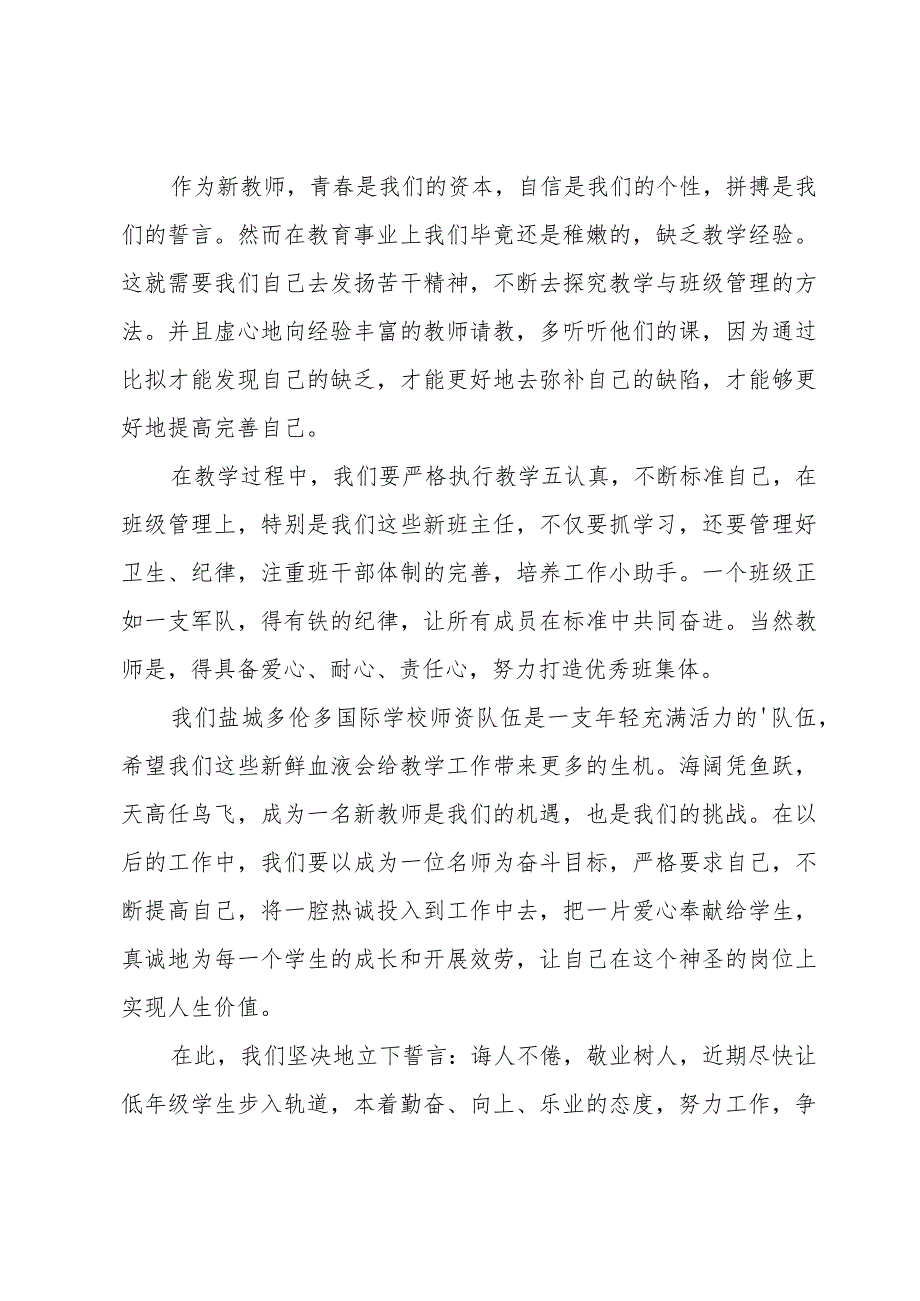 作为新教师，青春是我们的资本，自信是我们的个性，拼搏是我
们的誓言。然而在教育事业上我们毕竟还是稚嫩的，缺乏教学经验。
这就需要我们自己去发扬苦干精神，不断去探究教学与班级管理的方
法。并且虚心地向经验丰富的教师请教，多听听他们的课，因为通过
比拟才能发现自己的缺乏，才能更好地去弥补自己的缺陷，才能够更
好地提高完善自己。
在教学过程中，我们要严格执行教学五认真，不断标准自己，在
班级管理上，特别是我们这些新班主任，不仅要抓学习，还要管理好
卫生、纪律，注重班干部体制的完善，培养工作小助手。一个班级正
如一支军队，得有铁的纪律，让所有成员在标准中共同奋进。当然教
师是，得具备爱心、耐心、责任心，努力打造优秀班集体。
我们盐城多伦多国际学校师资队伍是一支年轻充满活力的'队伍，
希望我们这些新鲜血液会给教学工作带来更多的生机。海阔凭鱼跃，
天高任鸟飞，成为一名新教师是我们的机遇，也是我们的挑战。在以
后的工作中，我们要以成为一位名师为奋斗目标，严格要求自己，不
断提高自己，将一腔热诚投入到工作中去，把一片爱心奉献给学生，
真诚地为每一个学生的成长和开展效劳，让自己在这个神圣的岗位上
实现人生价值。
在此，我们坚决地立下誓言：诲人不倦，敬业树人，近期尽快让
低年级学生步入轨道，本着勤奋、向上、乐业的态度，努力工作，争